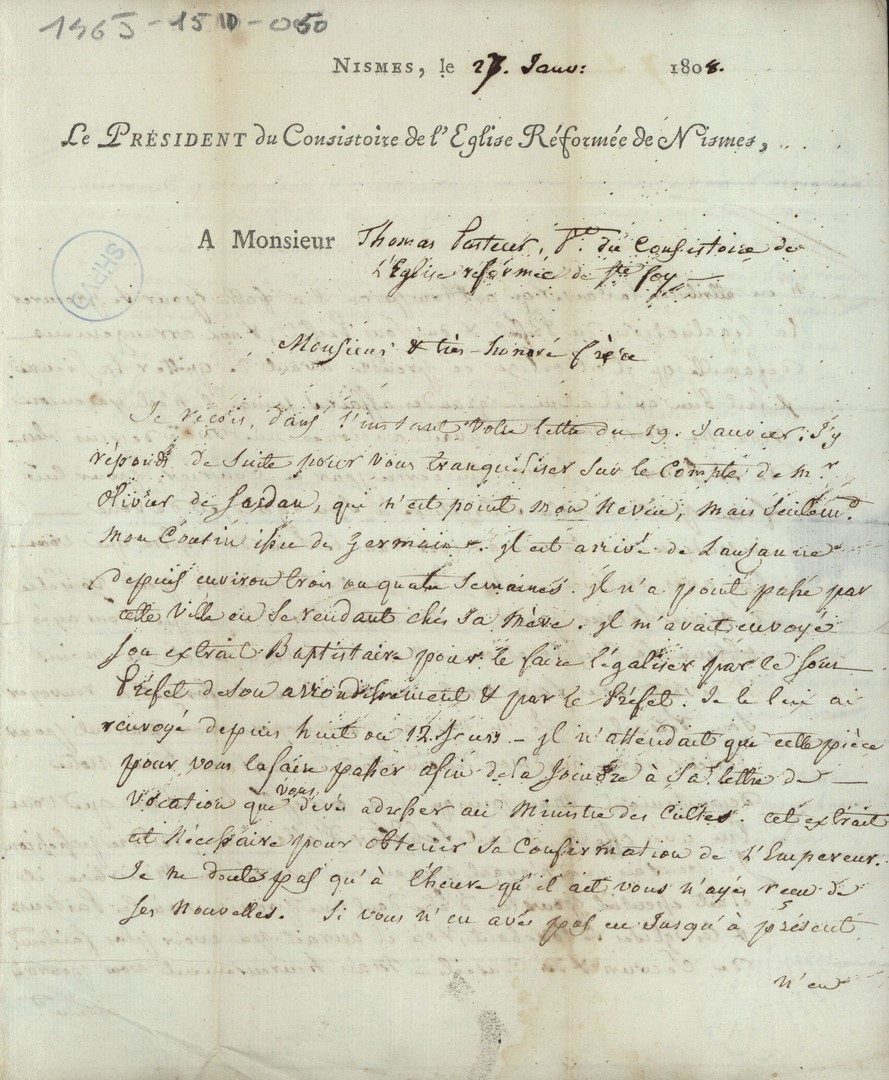 1965-15D-050
NISMES, le 27. Janv: 1808.
Le PRÉSIDENT du Consistoire de l'Eglise Réformée de Nismes,
A Monsieur Thomas Pasteur, Pt. du Consistoire de
L'Eglise reformée de Ste foy
SHPVD
Monsieur & très-honoré frère
Je reçois, dans l'instant votre lettre du 19. Janvier. J'y
réponds de suite pour vous tranquiliser sur le Compte de mr.
Olivier de Sardan, qui n'est point mon Neveu, mais seulemt.
mon Cousin issu de Germain. jl est arrivé de Lausanne
depuis environ trois ou quatre Semaines. jl n'a point passé par
cette Ville en se rendant chés Sa Mère. jl m'avait envoyé
son extrait Baptistaire pour le faire légaliser par le Sous-
Préfet de son arrondissement & par le Préfet. Je le lui ai
renvoyé depuis huit ou 12. Jours - jl n'attendait que cette pièce
pour vous la faire passer afin de la Joindre à Sa lettre de
vocation que vous devés adresser au Ministre des Cultes. cet extrait
est Nécessaire pour obtenir Sa Confirmation de L'Empereur.
Je ne doute pas qu'à l'heure qu'il est vous n'ayés reçu de
ses Nouvelles. Si vous n'en avés pas eu Jusqu'à présent
n'en